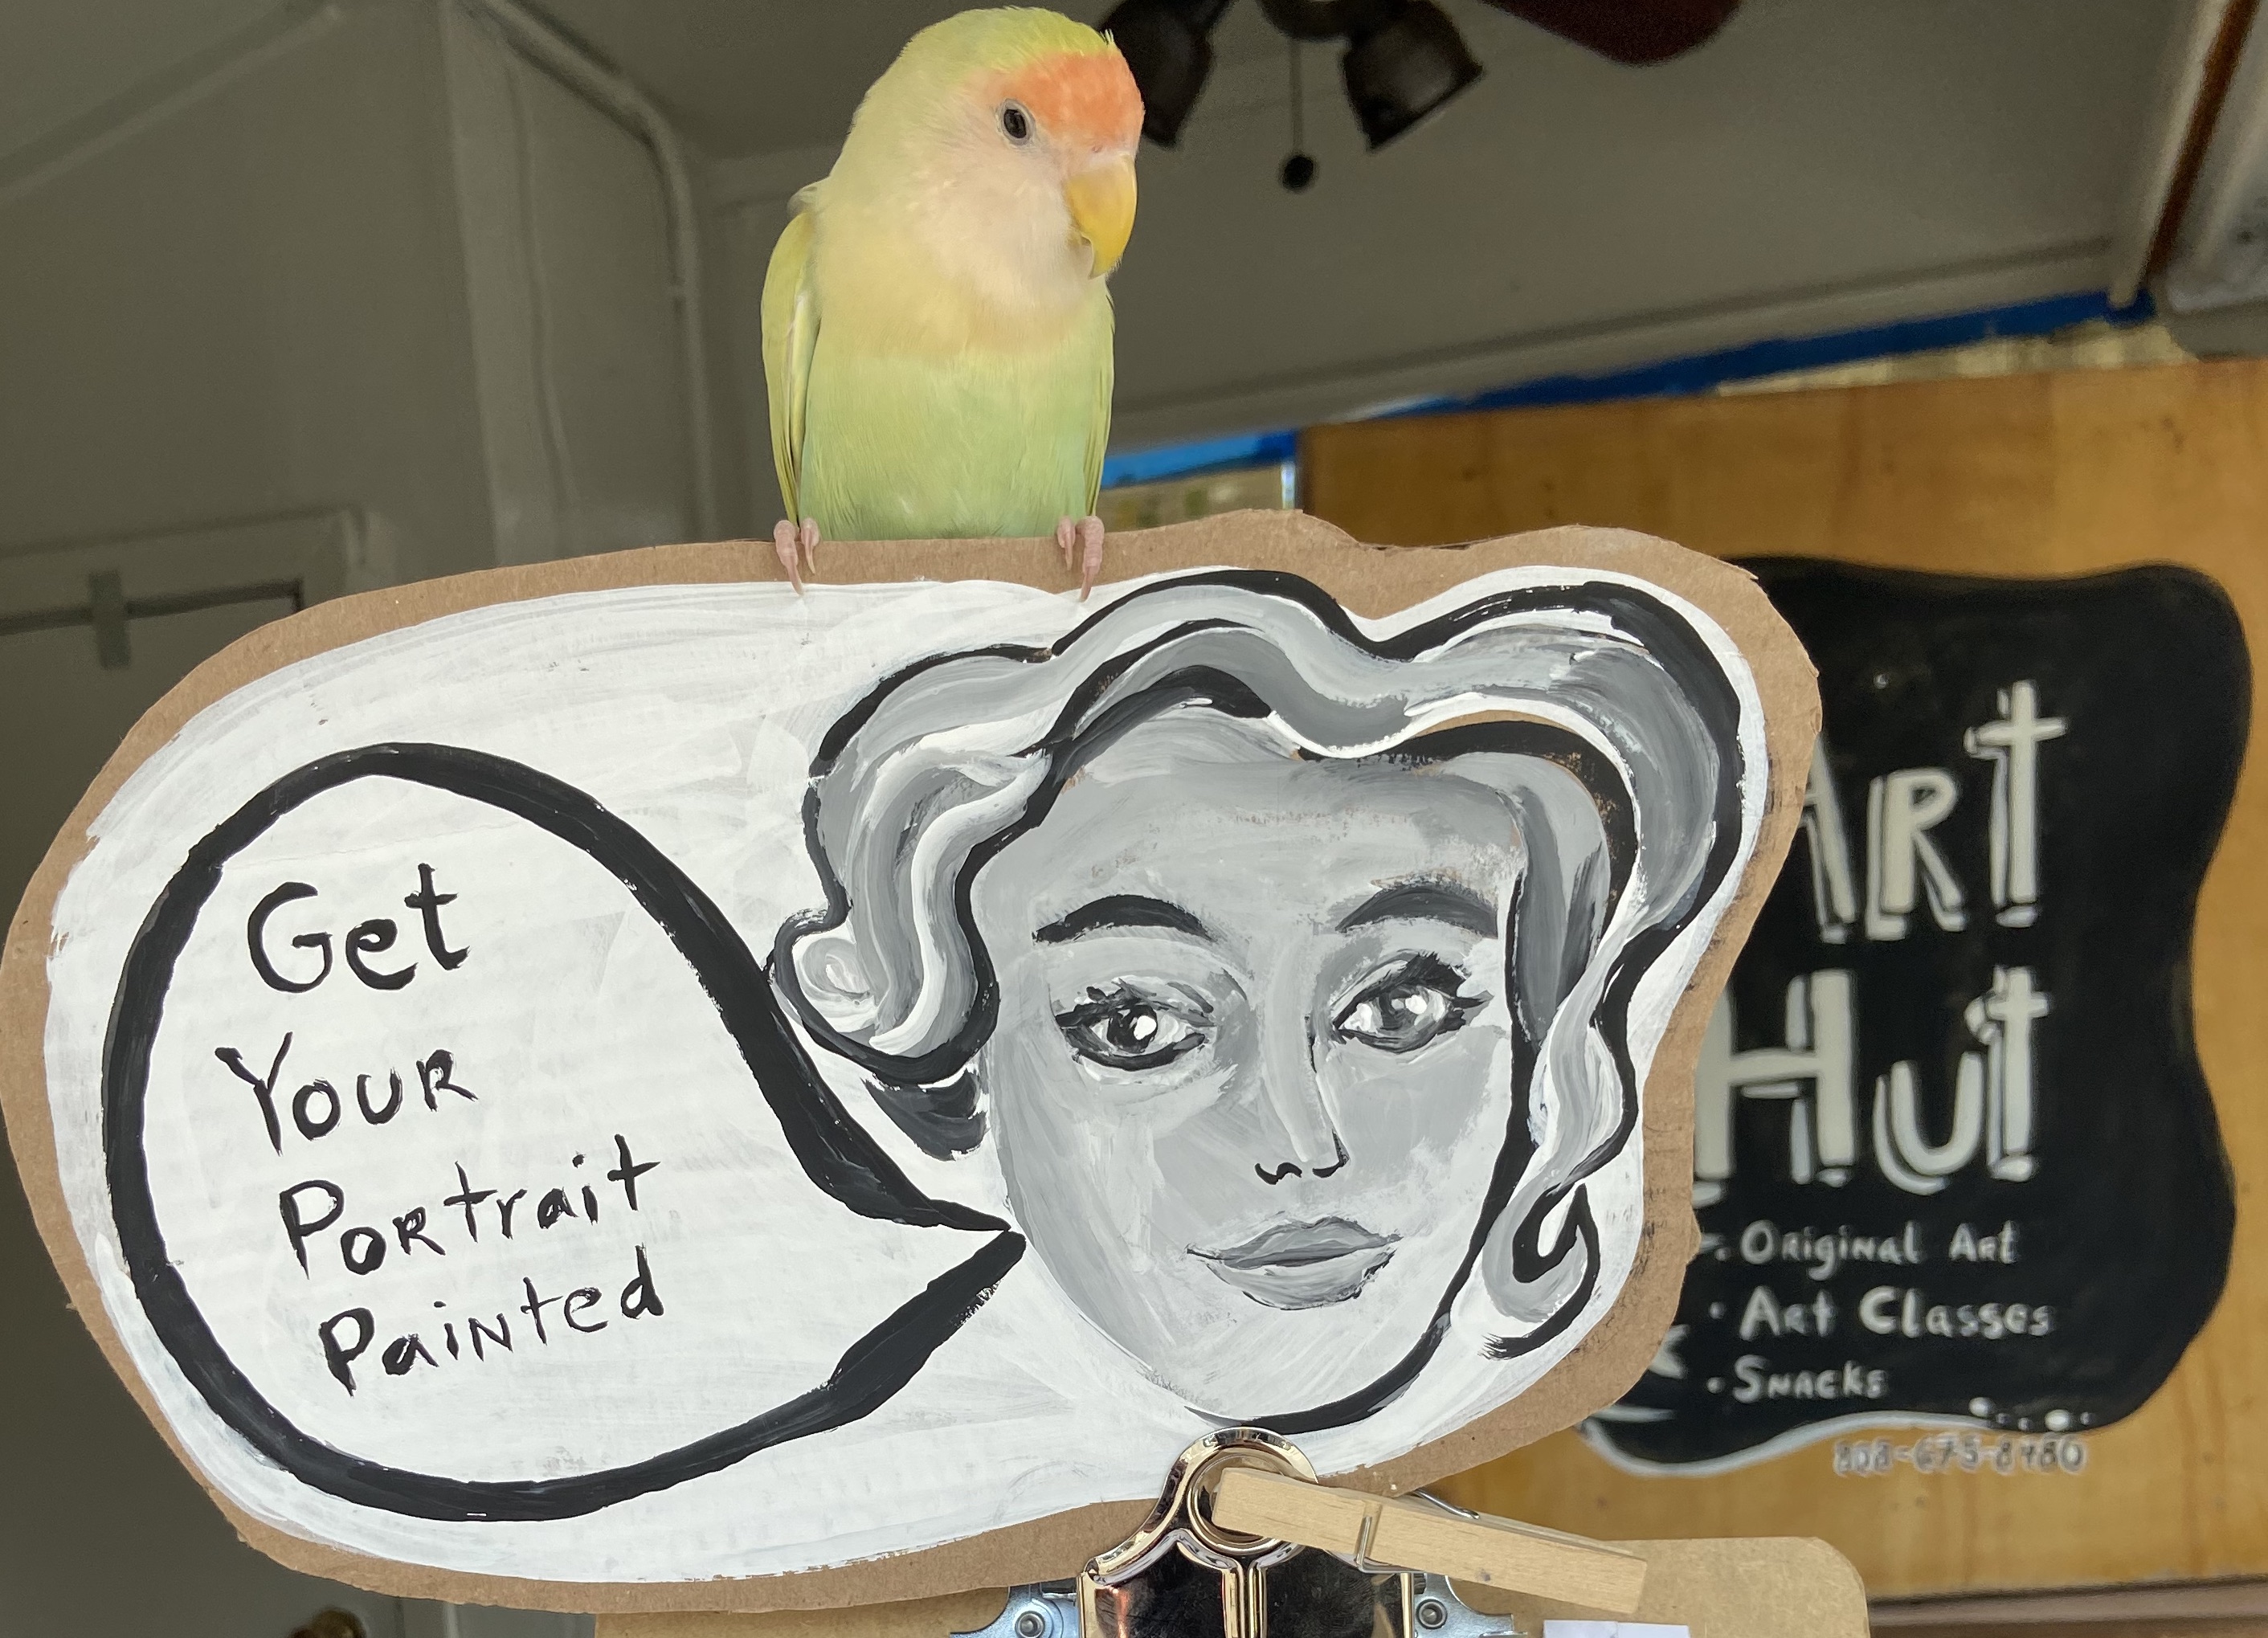 Get
Your
Portrait
Painted
Art
Hut
• Original Art
• Art Classes
• Snacks
808-675-8480